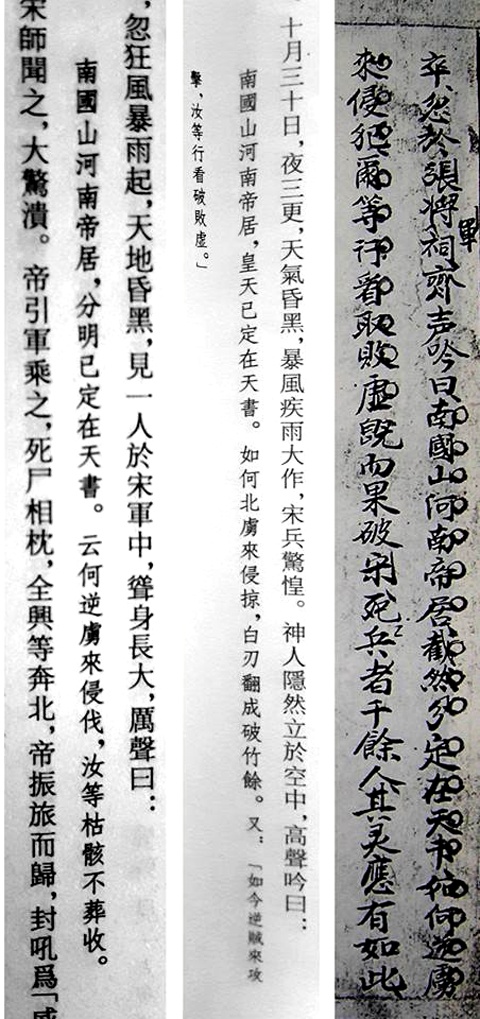 卒忽於張將軍祠齊声吟曰南國山河南帝居截然分定在天书如何逆虜
來侵犯爾等行看取敗虛既而果破宋死兵者千餘人其灵應有如此
十月三十日，夜三更，天氣昏黑，暴風疾雨大作，宋兵驚惶。神人隱然立於空中，高聲吟曰：
南國山河南帝居，皇天已定在天書。如何北虜來侵掠，白刃翻成破竹餘。又：「如今逆賊來攻
擊，汝等行看破敗虛。」
，忽狂風暴雨起，天地昏黑，見一人於宋軍中，聳身長大，厲聲曰：
南國山河南帝居，分明已定在天書。云何逆虜來侵伐，汝等枯骸不葬收。
宋師聞之，大驚潰。帝引軍乘之，死尸相枕，全興等奔北，帝振旅而歸，封吼爲「